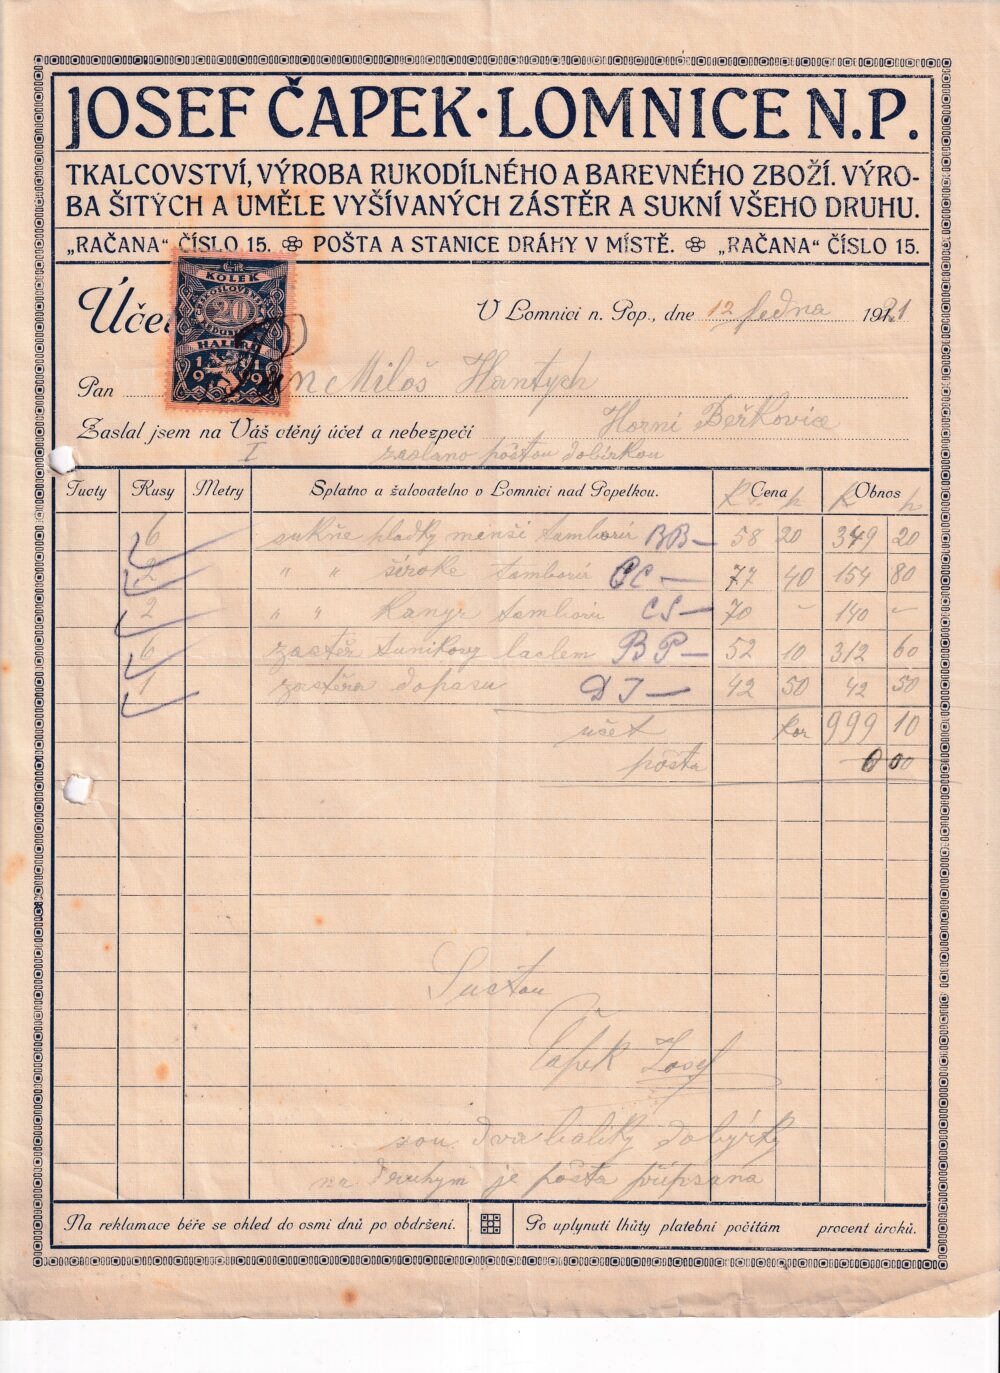 JOSEF ČAPEK · LOMNICE N.P.
TKALCOVSTVÍ, VÝROBA RUKODÍLNÉHO A BAREVNÉHO ZBOŽÍ. VÝRO-
BA ŠITÝCH A UMĚLE VYŠÍVANÝCH ZÁSTĚR A SUKNÍ VŠEHO DRUHU.
„RAČANA“ ČÍSLO 15. POŠTA A STANICE DRÁHY V MÍSTĚ. „RAČANA“ ČÍSLO 15.
KOLEK
20
HALÉŘŮ
1919
Účet
V Lomnici n. Pop., dne 12 ledna 1921
Pan Miloš Hantych
Horní Beřkovice
Zaslal jsem na Váš ctěný účet a nebezpečí
I zaslano poštou dobirkou
Tucty Kusy Metry Splatno a žalovatelno v Lomnici nad Popelkou. K Cena h K Obnos h
6 sukně hladky menší tamborir BB— 58 20 349 20
2 " " široke tamborir CC — 77 40 154 80
2 " " Kanyr tamborir CS— 70 – 140 –
6 zastěr tunikovy laclem BP— 52 10 312 60
1 zastěra dopasu DJ— 42 50 42 50
účet kor 999 10
pošta 00
Suctou
Čapek Josef
sou dva baliky dobyrky
na druhym je pošta připsana
Na reklamace béře se ohled do osmi dnů po obdržení. Po uplynutí lhůty platební počítám procent úroků.